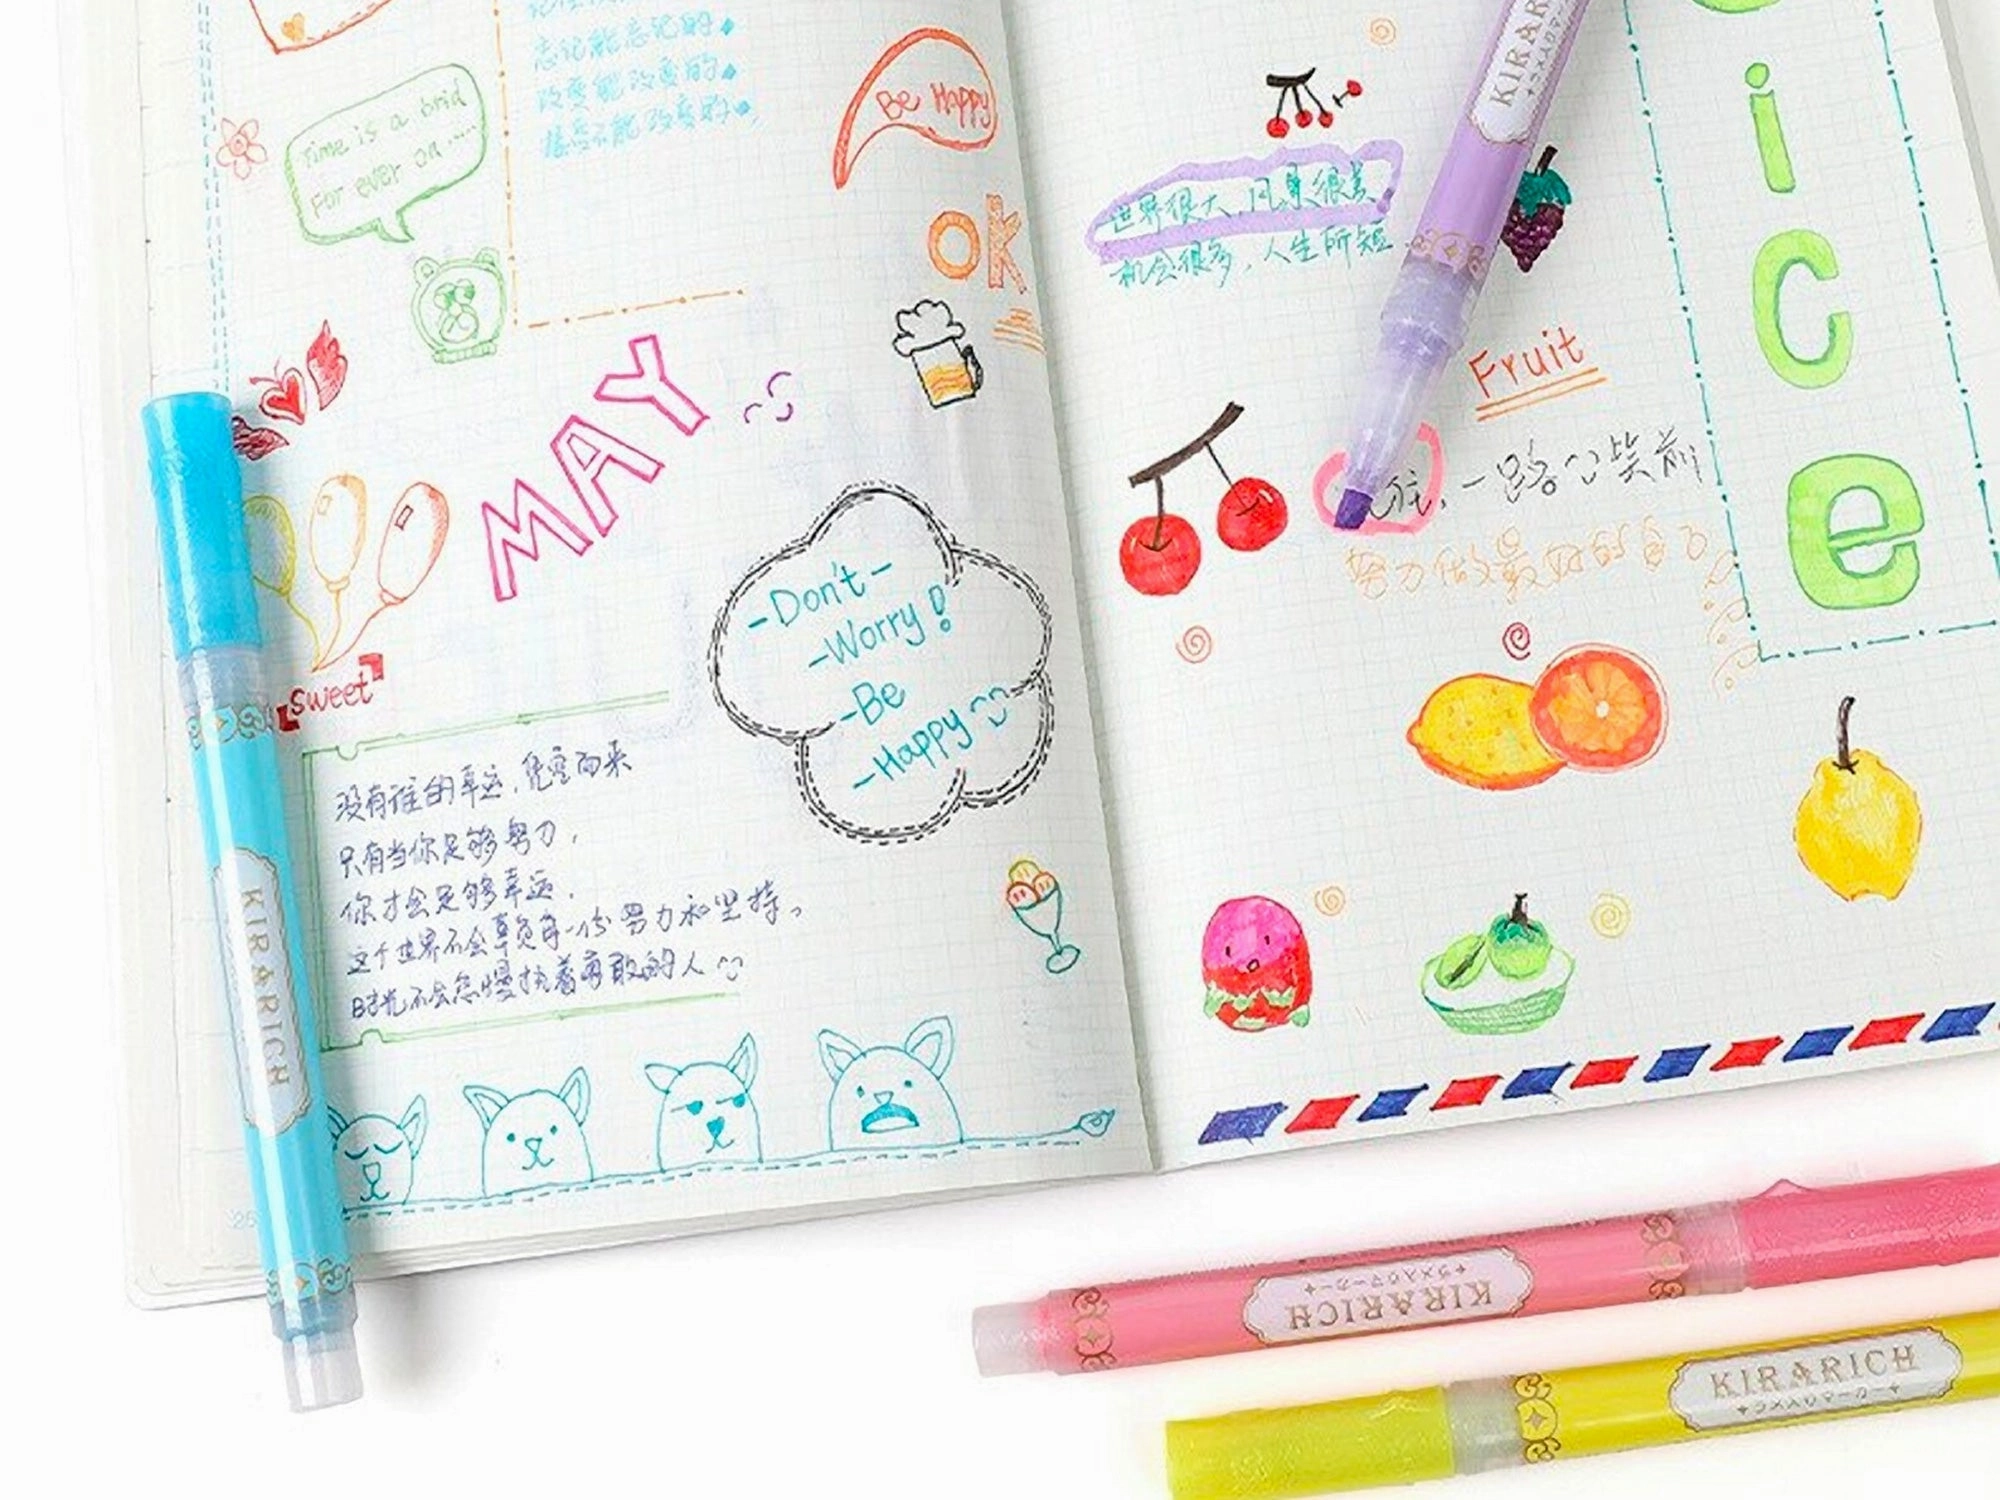 忘记能忘记的
改变能改变的
接受不能改变的
Time is a brid
For ever on ......
Be Happy
ok
MAY
-Don't-
-Worry!
-Be
-Happy
sweet
没有谁的幸运,凭空而来
只有当你足够努力,
你才会足够幸运.
这个世界不会辜负每一份努力和坚持。
时光不会怠慢执着勇敢的人
26
世界很大,风景很美
机会很多,人生所短
Fruit
往,一路 笑前
努力做最好的自己
ice
KIRARICH
KIRAR
KIRARICH
ラメ入りマーカー
KIRARICH
ラメ入りマーカー